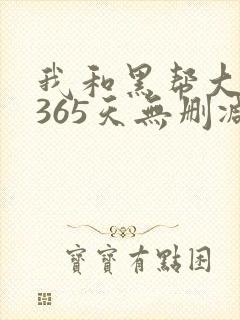 我和黑帮大
365天無刪減
寶寶有點困